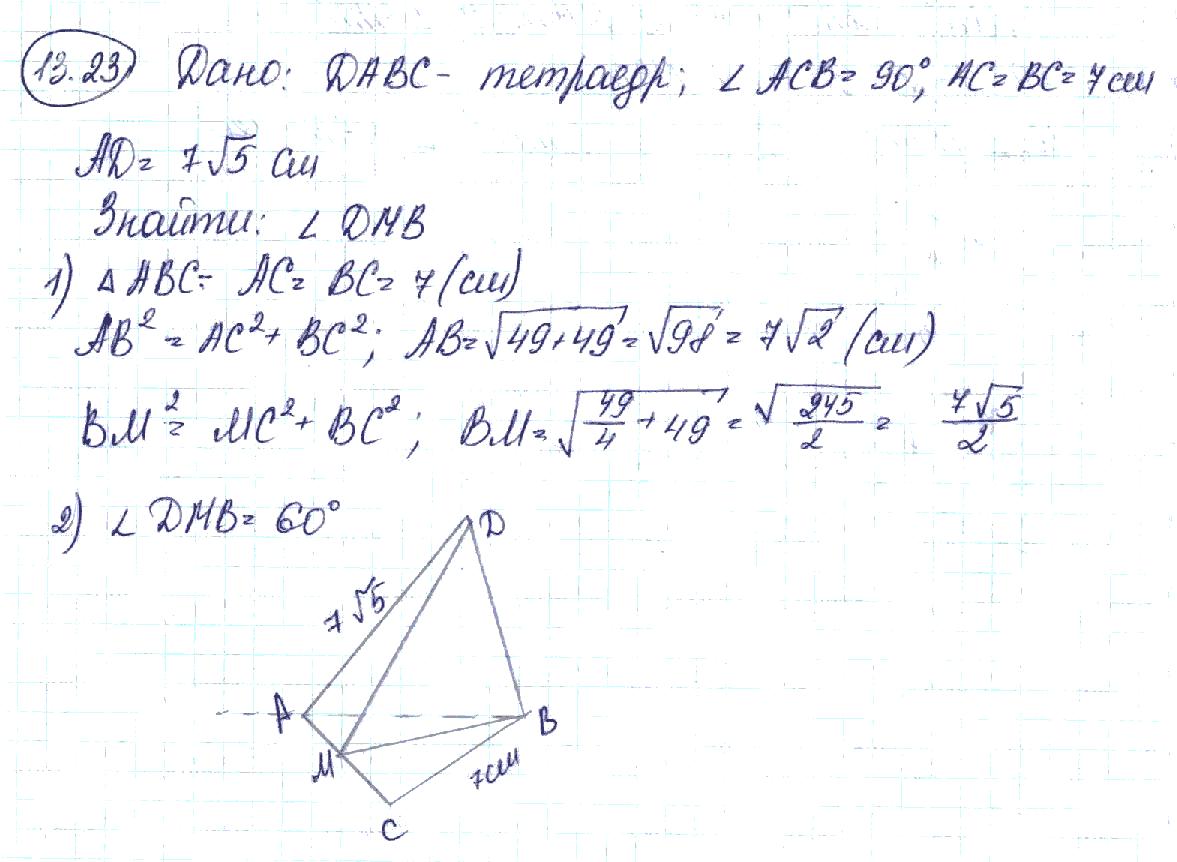 13.23 Дано: DABC - тетраедр; ∠ ACB = 90°, AC = BC = 7 см
AD = 7√5 см
Знайти: ∠ DMB
1) △ ABC - AC = BC = 7 (см)
AB² = AC² + BC²; AB = √(49+49) = √98 = 7√2 (см)
BM² = MC² + BC²; BM = √(49/4 + 49) = √(245/2) = 7√5/2
2) ∠ DMB = 60°
D
7√5
A
B
M
7см
C